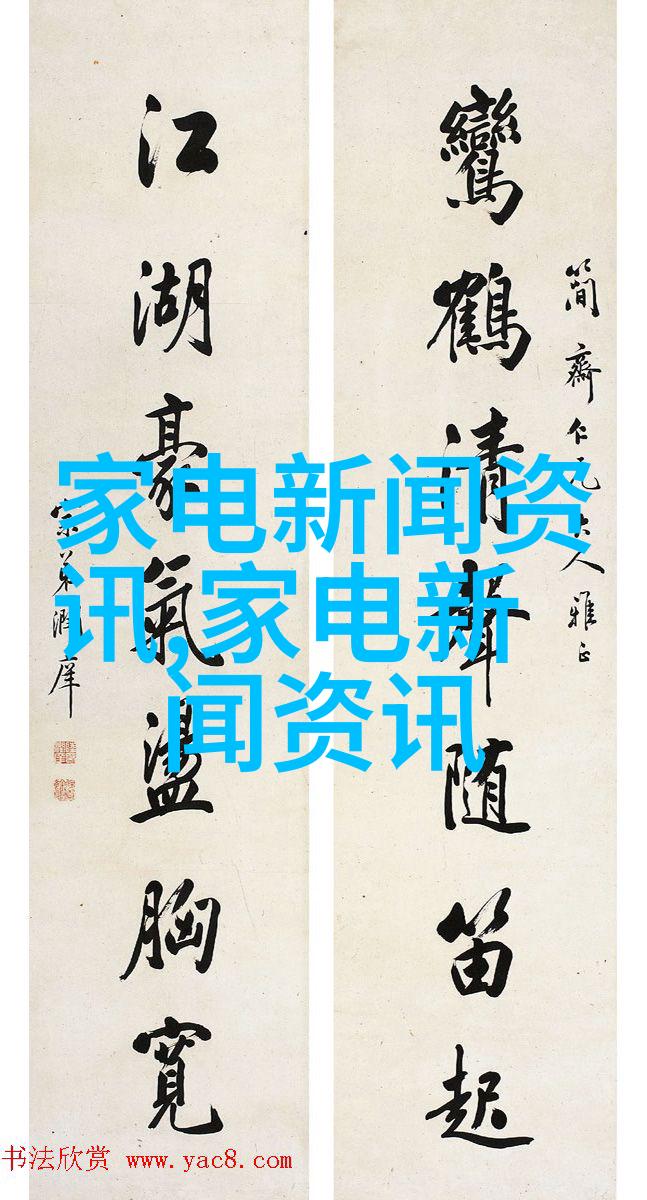 鸞鶴清聲随笛起
簡齋仁兄大人雅正
江湖豪氣盪胸寬
宗弟潤庠
家电新闻资
讯,家电新
闻资讯
书法欣赏 www.yac8.com